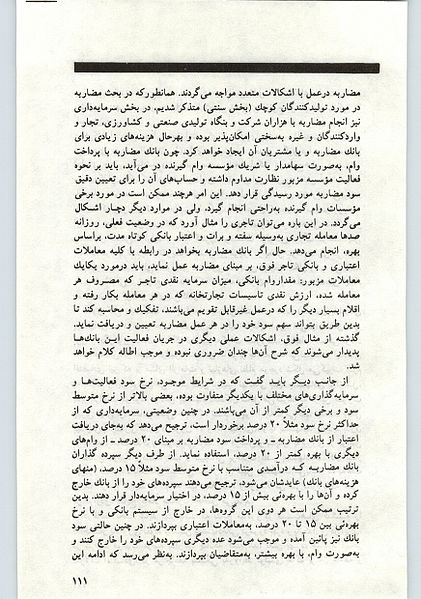 مضاربه درعمل با اشکالات متعدد مواجه می‌گردند. همانطورکه در بحث مضاربه
در مورد تولیدکنندگان کوچك (بخش سنتی) متذکر شدیم، در بخش سرمایه‌داری
نیز انجام مضاربه با هزاران شرکت و بنگاه تولیدی صنعتی و کشاورزی، تجار و
واردکنندگان و غیره به‌سختی امکان‌پذیر بوده و بهرحال هزینه‌های زیادی برای
بانك مضاربه و یا مشتریان آن ایجاد خواهد کرد. چون بانك مضاربه با پرداخت
وام، به‌صورت سهامدار یا شریك مؤسسه وام گیرنده در می‌آید، باید بر نحوه
فعالیت مؤسسه مزبور نظارت مداوم داشته و حساب‌های آن را برای تعیین دقیق
سود مضاربه مورد رسیدگی قرار دهد. این امر هرچند ممکن است در مورد برخی
مؤسسات وام گیرنده به‌راحتی انجام گیرد، ولی در موارد دیگر دچار اشکال
می‌گردد. در این باره می‌توان تاجری را مثال آورد که در وضعیت فعلی، روزانه
صدها معامله تجاری به‌وسیله سفته و برات و اعتبار بانکی کوتاه مدت، براساس
بهره، انجام می‌دهد. حال اگر بانك مضاربه بخواهد در رابطه با کلیه معاملات
اعتباری و بانکی تاجر فوق، بر مبنای مضاربه عمل نماید، باید درمورد یکایك
معاملات مزبور: مقداروام بانکی، میزان سرمایه نقدی تاجر که مصروف هر
معامله شده، ارزش نقدی تاسیسات تجارتخانه که در هر معامله بکار رفته و
اقلام بسیار دیگر را که درعمل غیرقابل تقویم می‌باشند، تفکیك و محاسبه کند تا
بدین طریق بتواند سهم سود خود را در هر عمل مضاربه تعیین و دریافت نماید.
گذشته از مثال فوق، اشکالات عملی دیگری در جریان فعالیت این بانك‌ها
پدیدار می‌شوند که شرح آن‌ها چندان ضروری نبوده و موجب اطاله کلام خواهد
شد.
از جانب دیگر باید گفت که در شرایط موجود، نرخ سود فعالیت‌ها و
سرمایه‌گذاری‌های مختلف با یکدیگر متفاوت بوده، بعضی بالاتر از نرخ متوسط
سود و برخی دیگر کمتر از آن می‌باشند. در چنین وضعیتی، سرمایه‌داری که از
حداکثر سود مثلاً ۲۰ درصد برخوردار است، ترجیح می‌دهد که به‌جای دریافت
اعتبار از بانك مضاربه ـ و پرداخت سود مضاربه بر مبنای ۲۰ درصد ـ از وام‌های
دیگری با بهره کمتر از ۲۰ درصد، استفاده نماید. از طرف دیگر سپرده گذاران
بانك مضاربه که درآمدی متناسب با نرخ متوسط سود مثلاً ۱۵ درصد، (منهای
هزینه‌های بانك) عایدشان می‌شود، ترجیح می‌دهند سپرده‌های خود را از بانك خارج
کرده و آن‌ها را با بهره‌ئی بیش از ۱۵ درصد، در اختیار سرمایه‌دار قرار دهند. بدین
ترتیب ممکن است هر دوی این گروه‌ها، در خارج از سیستم بانکی و با نرخ
بهره‌ئی بین ۱۵ تا ۲۰ درصد، به‌معاملات اعتباری بپردازند. در چنین حالتی سود
بانك نیز پائین آمده و موجب می‌شود عده دیگری سپرده‌های خود را خارج کنند و
به‌صورت وام، با بهره بیشتر، به‌متقاضیان بپردازند. به‌نظر می‌رسد که ادامه این
۱۱۱